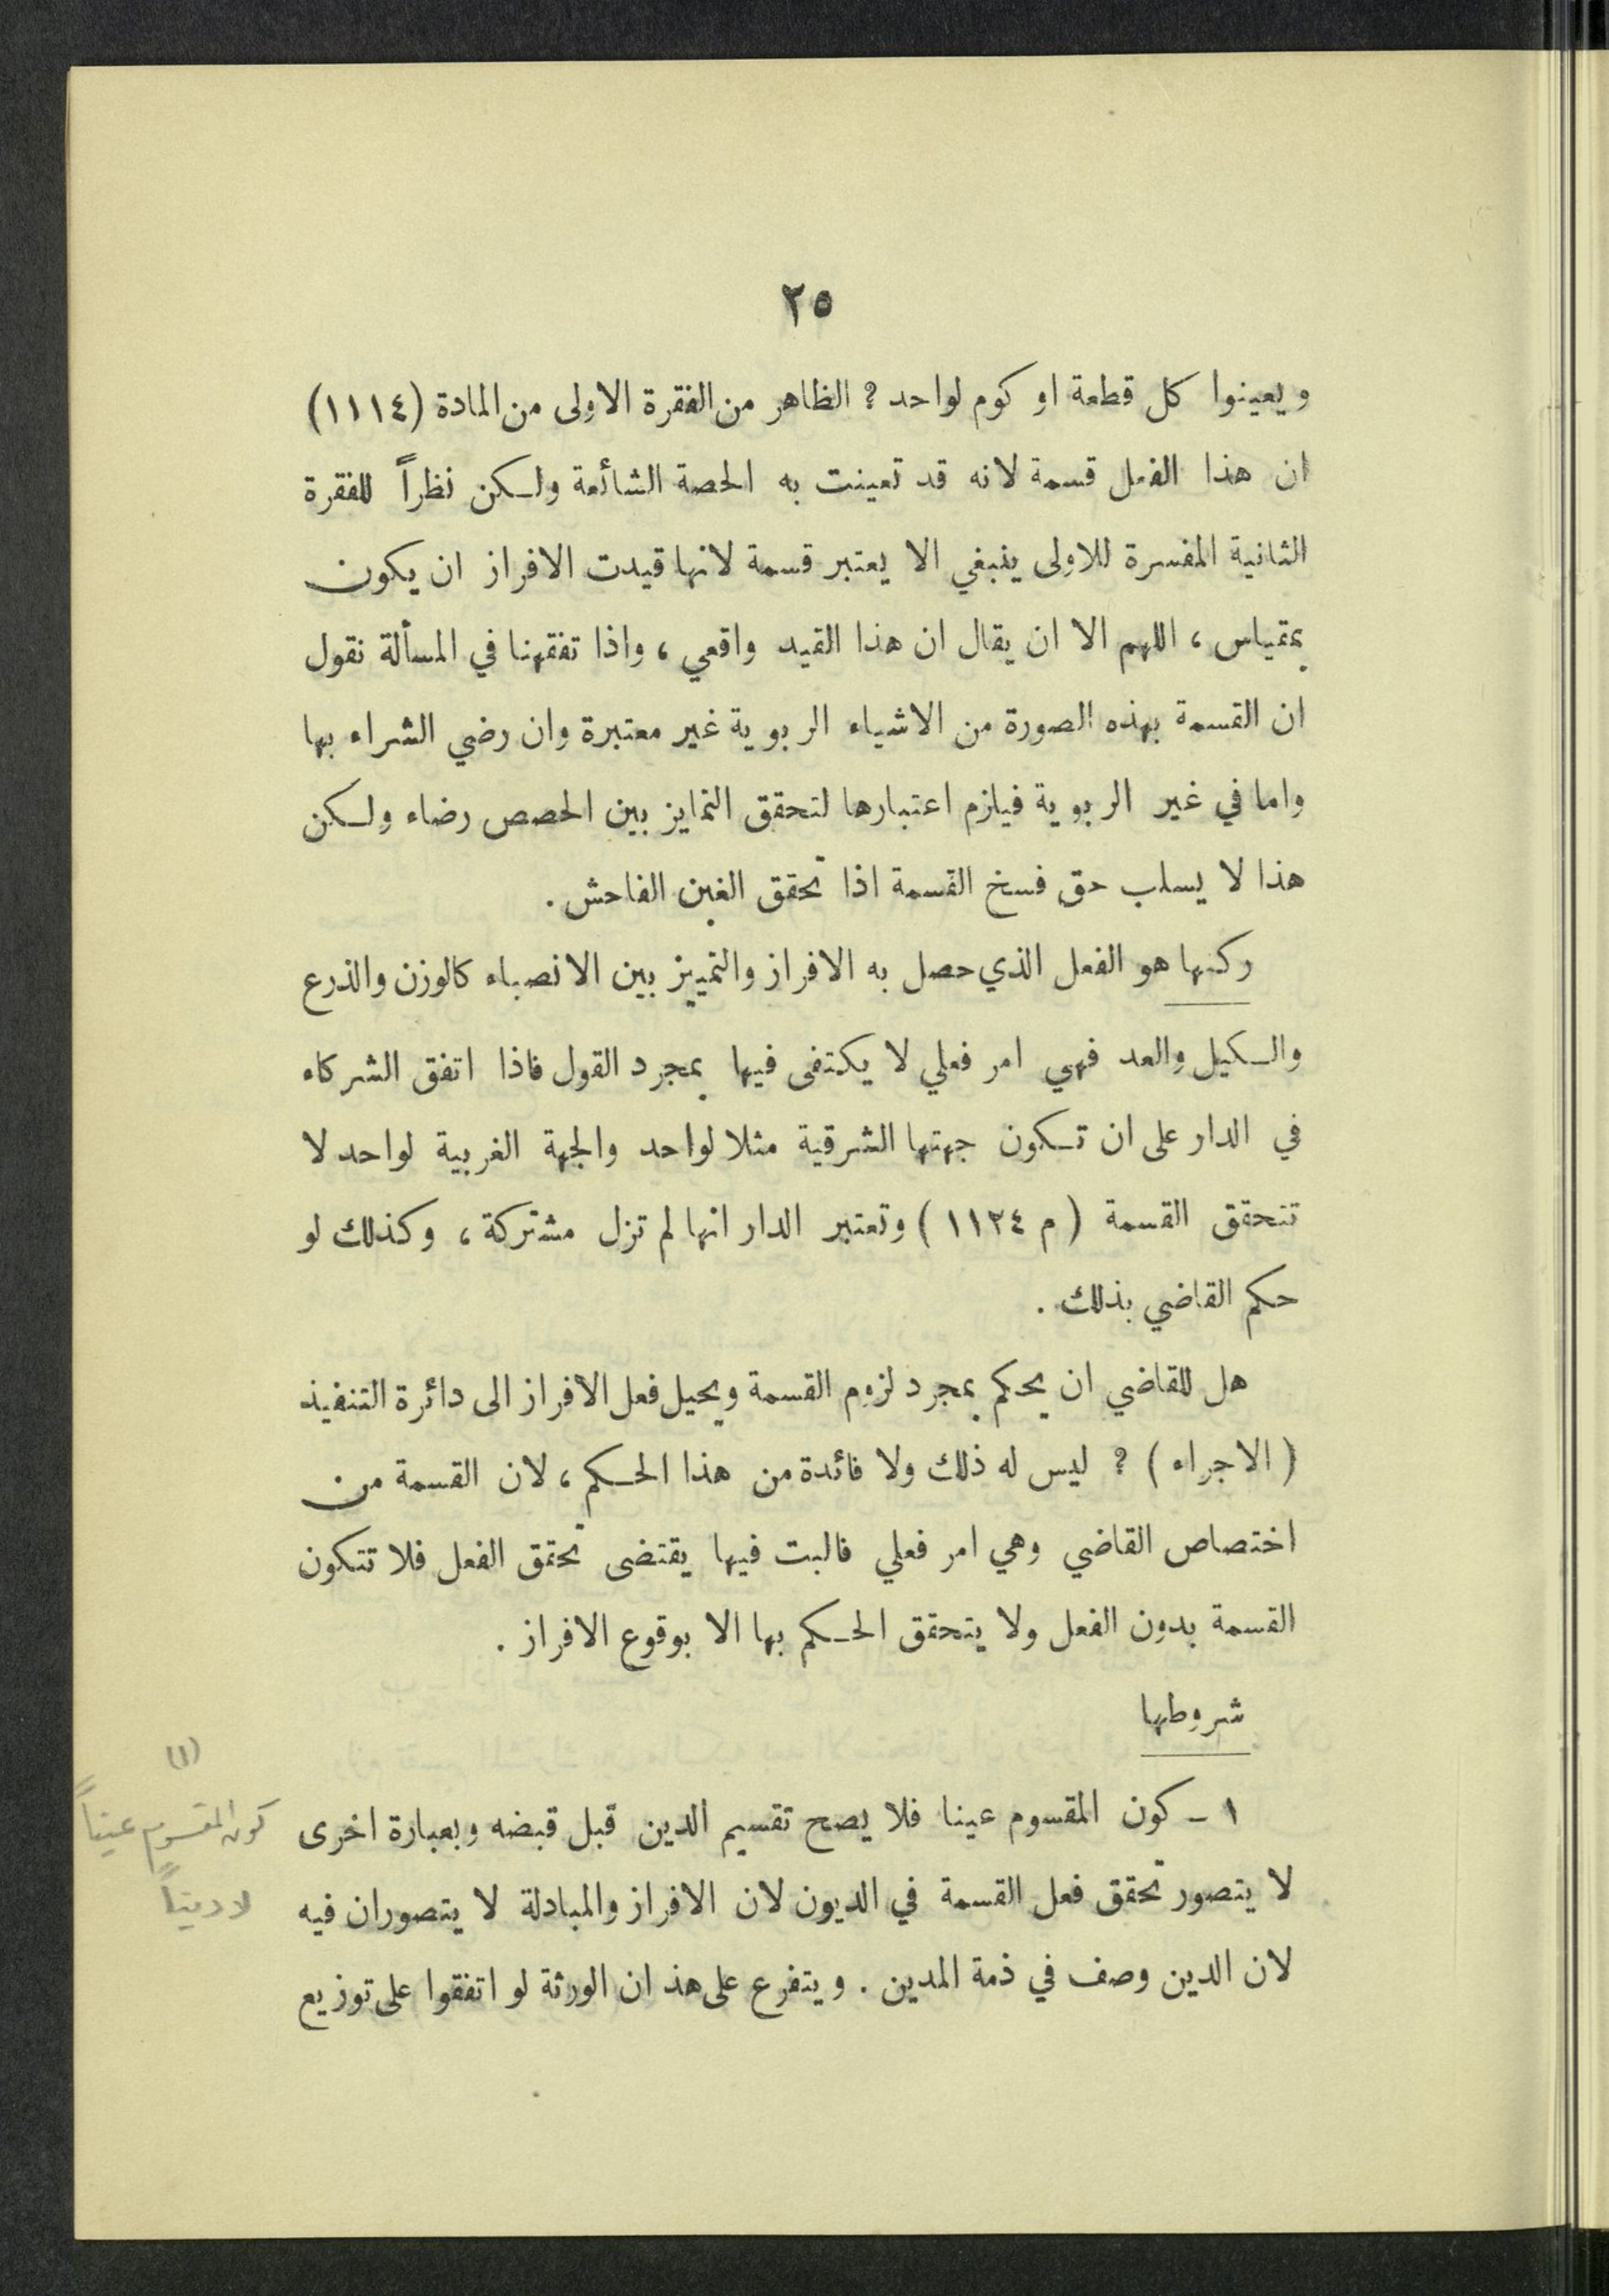 ٢٥
ويعينوا كل قطعة او كوم لواحد ? الظاهر من الفقرة الاولى من المادة (١١١٤)
ان هذا الفعل قسمة لانه قد تعينت به الحصة الشائعة ولكن نظراً للفقرة
الثانية المفسرة للاولى ينبغي الا يعتبر قسمة لانها قيدت الافراز ان يكون
بمقياس ، اللهم الا ان يقال ان هذا القيد واقعي ، واذا تفقهنا في المسألة نقول
ان القسمة بهذه الصورة من الاشياء الربوية غير معتبرة وان رضي الشراء بها
واما في غير الربوية فيلزم اعتبارها لتحقق التمايز بين الحصص رضاء ولكن
هذا لا يسلب حق فسخ القسمة اذا تحقق الغبن الفاحش .
ركنها هو الفعل الذي حصل به الافراز والتمييز بين الانصباء كالوزن والذرع
والكيل والعد فهي امر فعلي لا يكتفى فيها بمجرد القول فاذا اتفق الشركاء
في الدار على ان تكون جهتها الشرقية مثلا لواحد والجهة الغربية لواحد لا
تتحقق القسمة ( م ١١٢٤ ) وتعتبر الدار انها لم تزل مشتركة ، وكذلك لو
حكم القاضي بذلك .
هل للقاضي ان يحكم بمجرد لزوم القسمة ويحيل فعل الافراز الى دائرة التنفيذ
( الاجراء ) ? ليس له ذلك ولا فائدة من هذا الحكم ، لان القسمة من
اختصاص القاضي وهي امر فعلي فالبت فيها يقتضى تحقق الفعل فلا تتكون
القسمة بدون الفعل ولا يتحقق الحكم بها الا بوقوع الافراز .
شروطها
١ - كون المقسوم عينا فلا يصح تقسيم الدين قبل قبضه وبعبارة اخرى
لا يتصور تحقق فعل القسمة في الديون لان الافراز والمبادلة لا يتصوران فيه
لان الدين وصف في ذمة المدين . ويتفرع على هذ ان الورثة لو اتفقوا على توزيع
(١)
كون المقسوم عيناً
لا ديناً